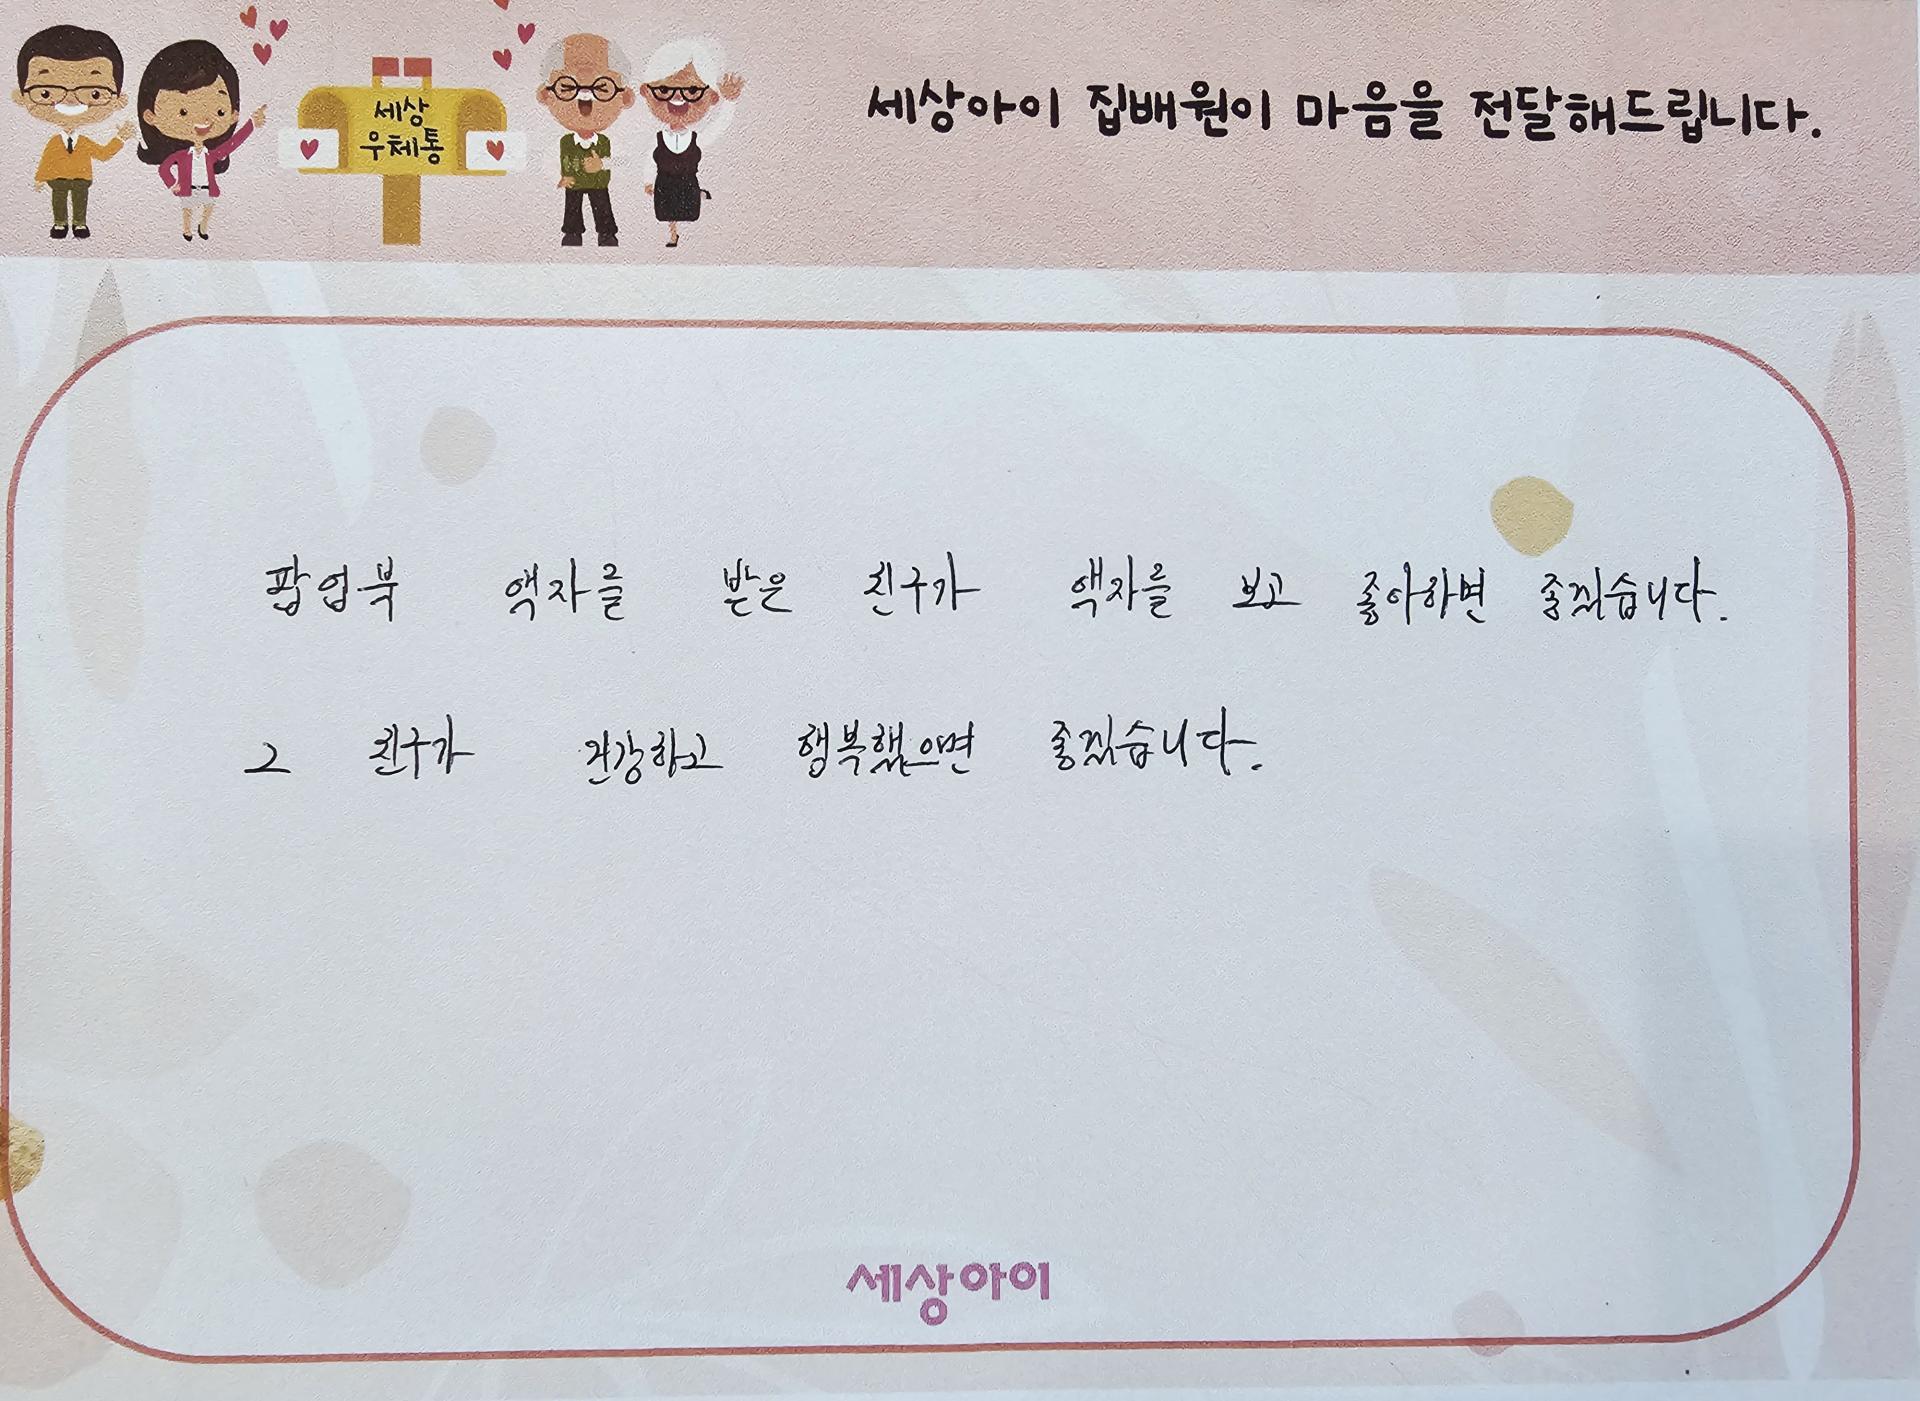 세상
우체통
세상아이 집배원이 마음을 전달해드립니다.
팝업북 액자를 받은 친구가 액자를 보고 좋아하면 좋겠습니다.
그 친구가 건강하고 행복했으면 좋겠습니다.
세상아이